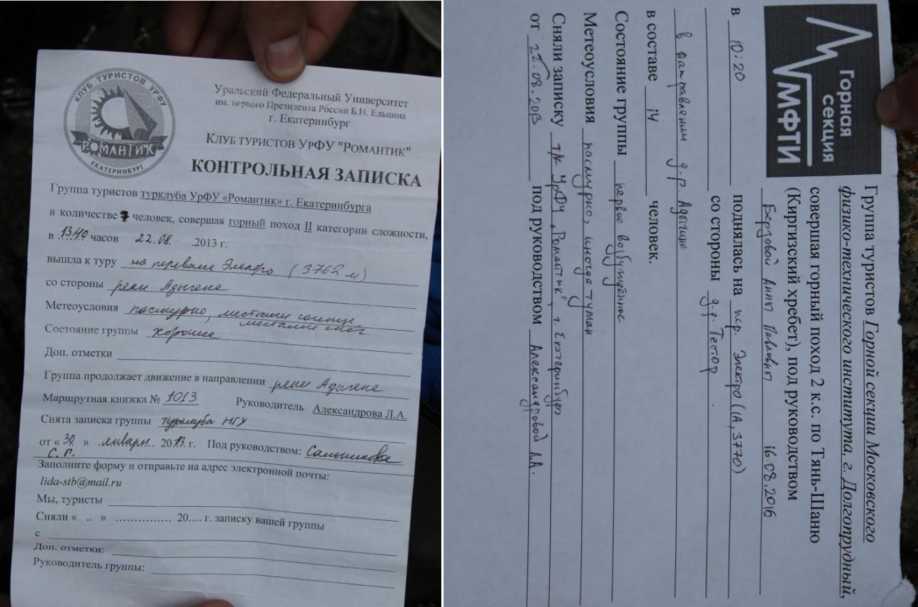 КЛУБ ТУРИСТОВ УРФУ
РОМАНТИК
ЕКАТЕРИНБУРГ
Уральский Федеральный Университет
им. первого Президента России Б.Н. Ельцина
г. Екатеринбург
КЛУБ ТУРИСТОВ УРФУ "РОМАНТИК"
КОНТРОЛЬНАЯ ЗАПИСКА
Группа туристов турклуба УрФУ «Романтик» г. Екатеринбурга
в количестве 7 человек, совершая горный поход II категории сложности,
в 13:40 часов 22.08. 2013 г.
вышла к туру на перевале Электро (3762 м)
со стороны реки Адыгене
Метеоусловия пасмурно, местами солнце
местами
Состояние группы хорошее
Доп. отметки
Группа продолжает движение в направлении реки Адыгене
Маршрутная книжка № 1013 Руководитель Александрова Л.А.
Снята записка группы турклуба НГУ
от « 30 » январь 2013 г. Под руководством:
С.Г.
Заполните форму и отправьте на адрес электронной почты:
lida-stb@mail.ru
Мы, туристы
Сняли « .. » ............... 20.... г. записку вашей группы
с
Доп. отметки:
Руководитель группы:
Горная
секция
МФТИ
Группа туристов Горной секции Московского
физико-технического института, г. Долгопрудный,
совершая горный поход 2 к.с. по Тянь-Шаню
(Киргизский хребет), под руководством
Павловны 16.08.2016
в 10:20 поднялась на пер. Электро (1А, 3770)
со стороны
в направлении д.р. Адыгине
в составе 14 человек.
Состояние группы
Метеоусловия пасмурно, иногда туман
Сняли записку т/к УрФУ „Романтик", г. Екатеринбург
от 22.08.2013 под руководством Александровой Л.А.